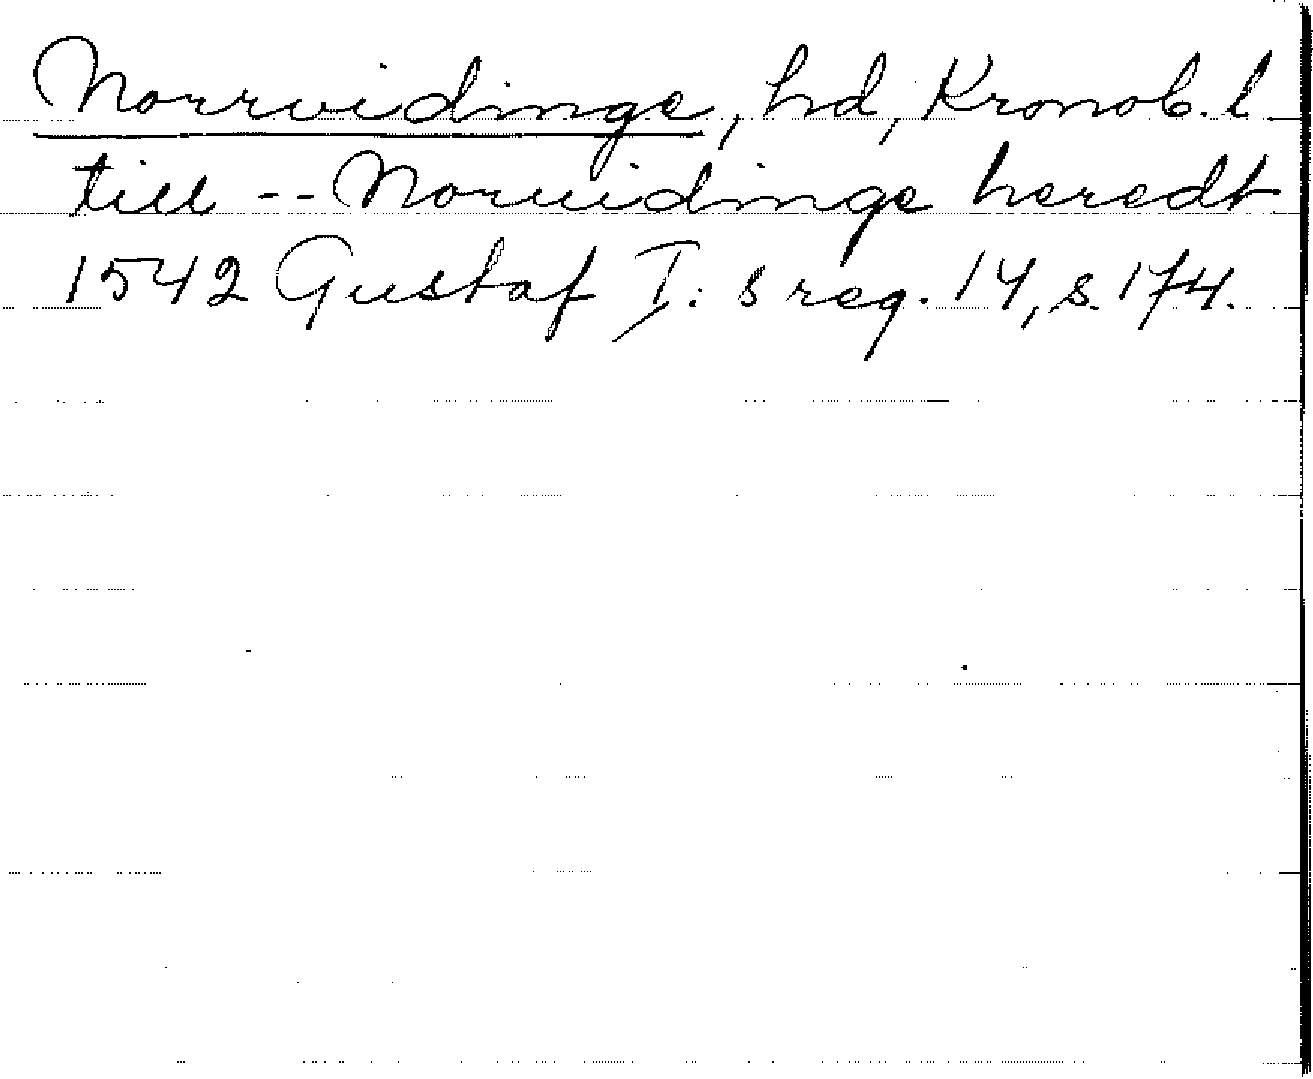 Norrvidinge, hd, Kronob. l
till -- Noruidinge heredt
1542 Gustaf I: s reg. 14, s. 174.